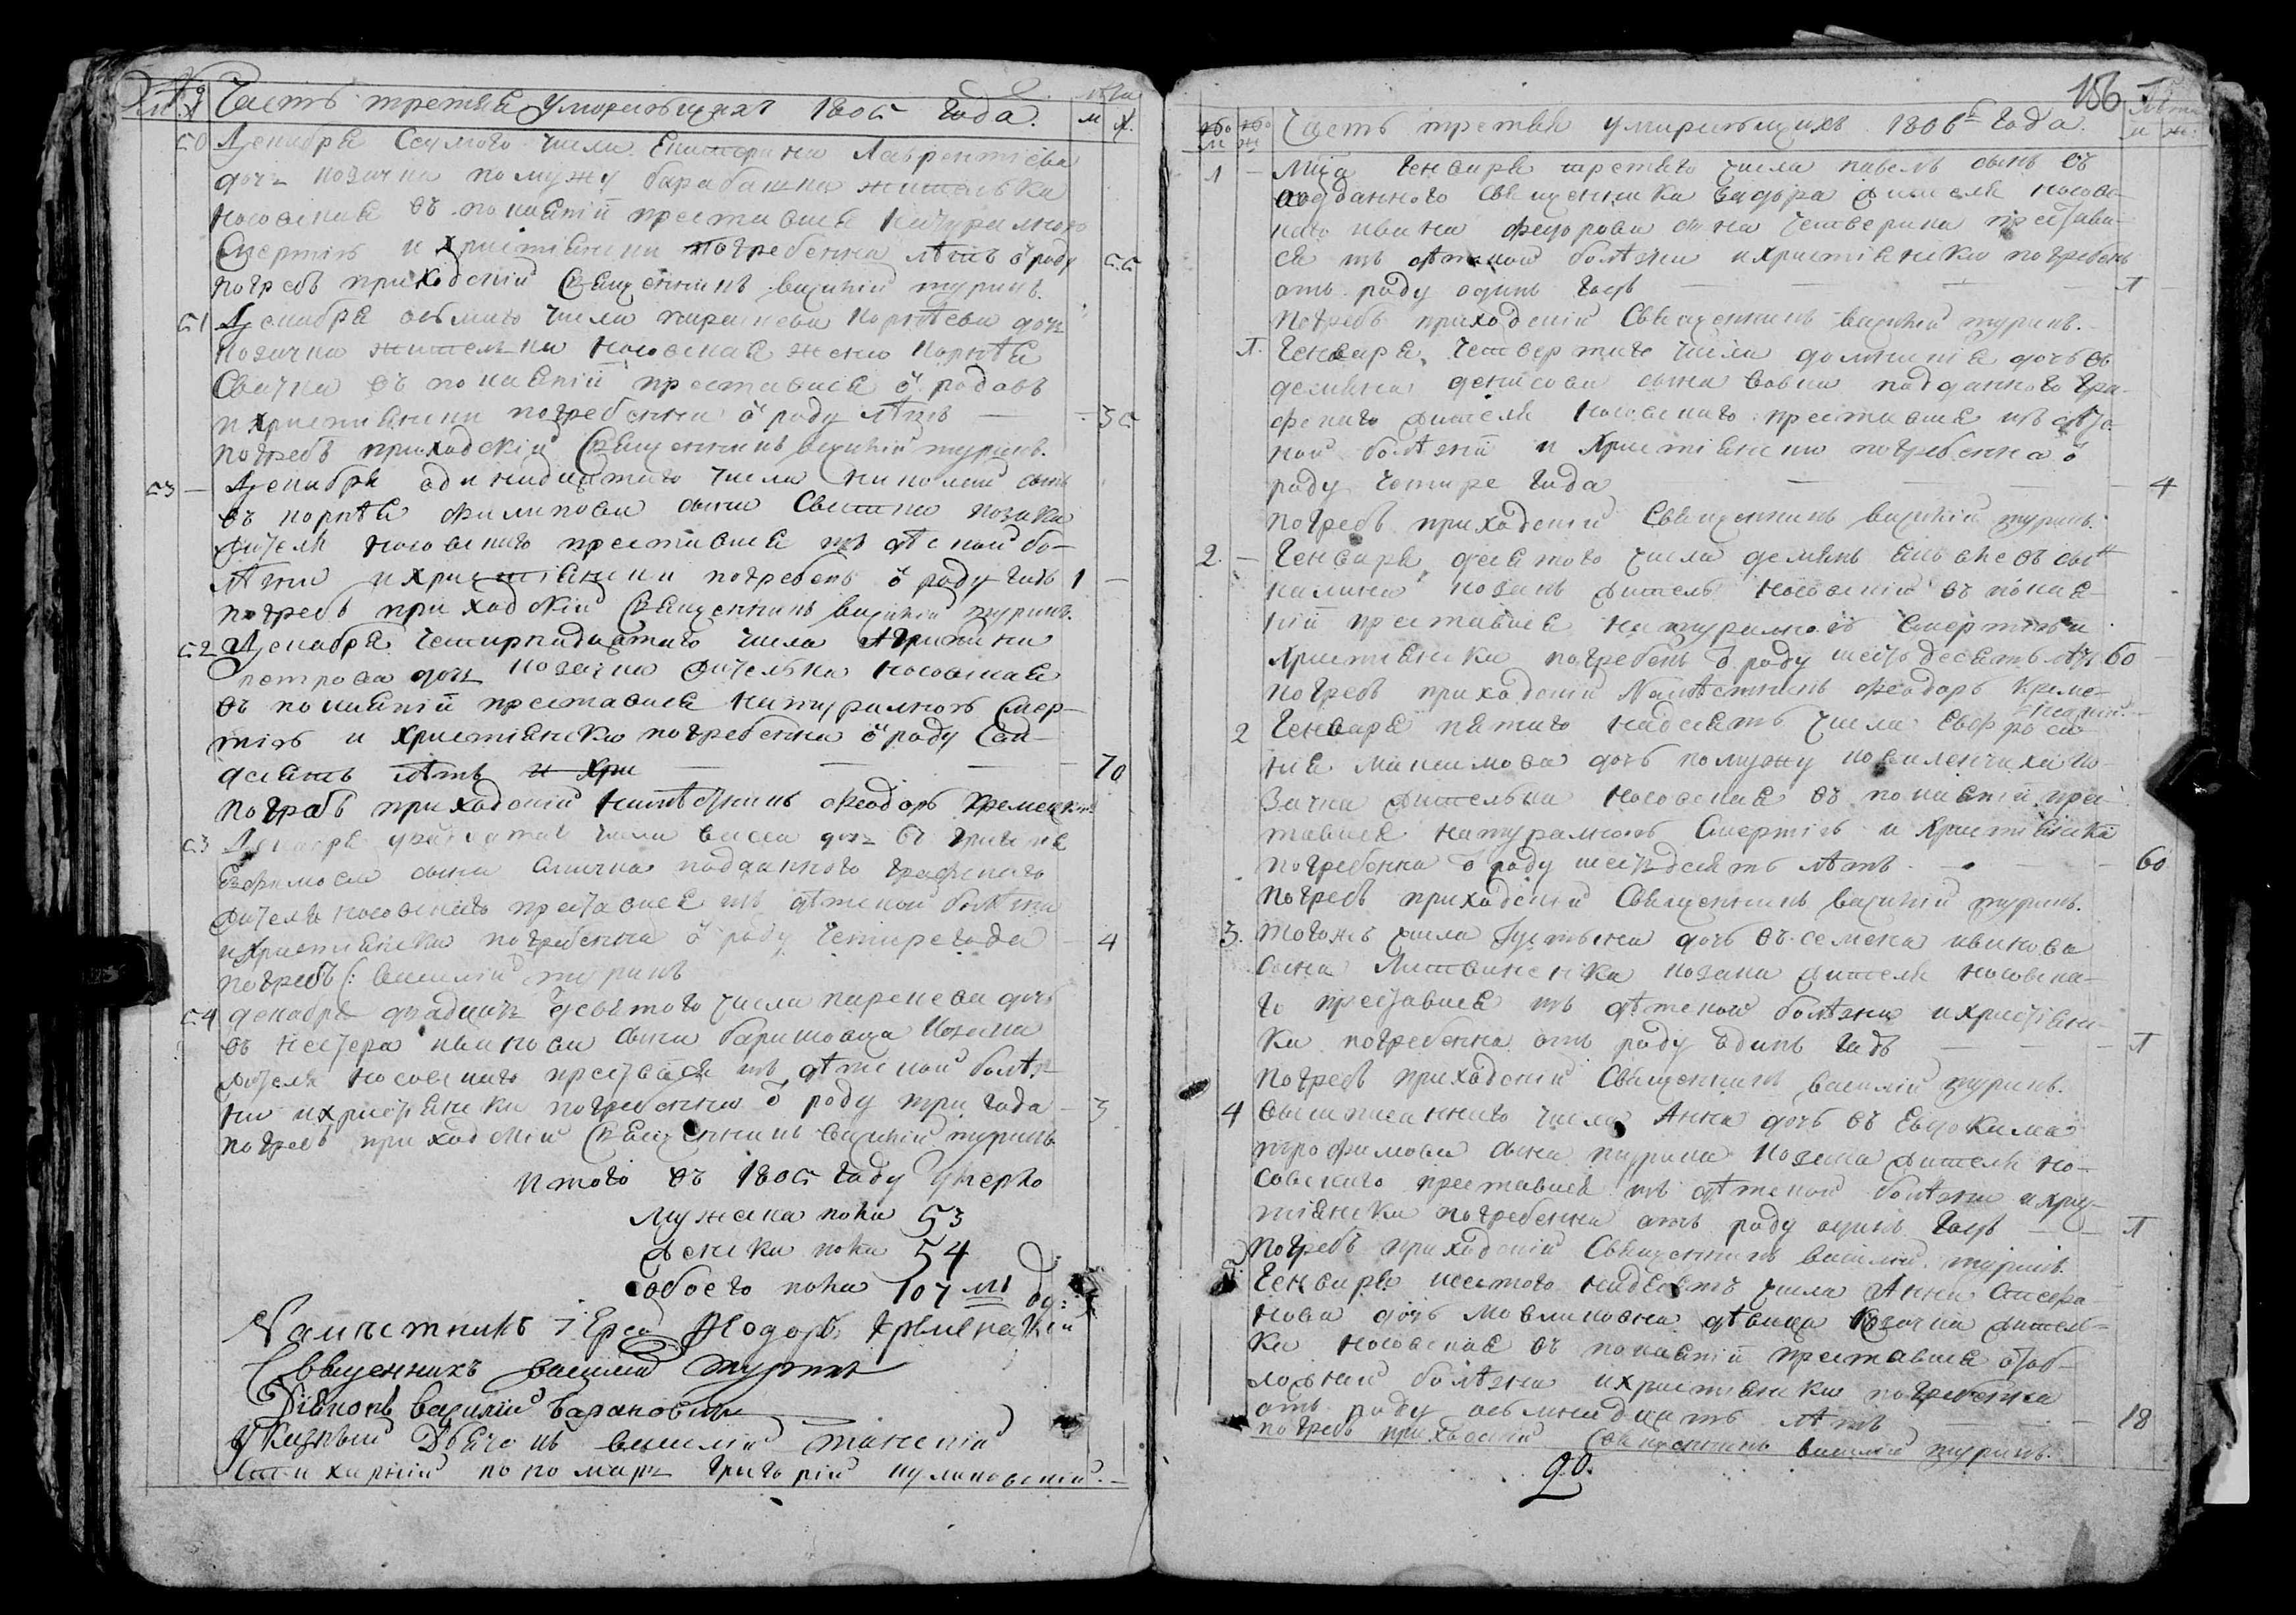 Часть третья Умиравщихъ 1805 года.
м ж
50 Декабря Седмого числа Екатерина Лаврентіева
дочь козачка по мужу барабашка жителька
Носовская въ покаяніи преставися натуралною
Смертію и христіянски погребенна лѣтъ ѿ роду 55
погребъ приходскій Священникъ василій туринъ.
51 Декабря осьмаго числа параскева Корнѣева дочь
козачка жителька Носовская жена Корнѣя
Свитка въ покаяніи преставися ѿ родовъ
и христіянски погребенна ѿ роду лѣтъ — 35
погребъ приходскій Священникъ василій туринъ.
53 — Декабря одинадцатаго числа Николай сынъ
въ корнѣя Филипова сына Свитка козака
жителя Носовскаго преставися въ дѣтской бо-
лѣзни и христіянски погребенъ ѿ роду годъ 1 —
погребъ приходскій Священникъ василій туринъ.
52 Декабря четирнадцатаго числа
петрова дочь козачка жителька Носовская
въ покаяніи преставися натуралною Смер-
тію и христіянски погребенна ѿ роду Сем-
десятъ лѣтъ и Хри — 70
погребъ приходскій Намѣстникъ Феодоръ Кременецкій
53 Декабря числа васса дочь въ
сына подданного графскаго
жителя носовскаго преставися въ дѣтской болѣзни
и христіянски погребенна ѿ роду четире года — 4
погребъ С: василій туринъ
54 декабря двадцать девятого числа параскева дочь
въ Нестера иванова сына баришовца козака
жителя носовскаго преставися въ дѣтской болѣз-
ни и христіянски погребенна ѿ роду три года — 3
погребъ приходскій Священникъ василій туринъ
итого въ 1805 году умерло
Мужеска пола 53
Женска пола 54
обоего пола 107
Намѣстникъ Іерей Феодоръ Кременецкій
Священникъ василій туринъ
Діяконъ василій Барановскій
Указный Дьячокъ василій
Стихарній пономарь григорій
156
Лѣта
Часть третья умирившихъ 1806г года.
м ж
1 — Мца Генваря третяго числа павелъ сынъ въ
подданного Священника жителя носовс-
каго ивана федорова сына Четверика престави-
ся въ дѣтской болѣзни и христіянски погребенъ
отъ роду одинъ годъ — 1
погребъ приходскій Священникъ василій туринъ.
1. Генваря четвертаго числа домникія дочь въ
деміяна денисова сына вовка подданного гра-
фскаго жителя Носовскаго преставися въ дѣтс-
кой болѣзни и Христіянски погребенна ѿ
роду Четире Года — 4
погребъ приходскій Священникъ василій туринъ.
2. — Генваря десятого числа деміянъ сынъ
калина козакъ житель Носовскій въ покая-
ніи преставися натуралною Смертію и
христіянски погребенъ ѿ роду шестьдесятъ лѣтъ 60
погребъ приходскій Намѣстникъ Феодоръ Креме-
нецкій.
2 Генваря пятаго надесять числа Евфроси-
нія Максимова дочь по мужу ко-
зачка жителька Носовская въ покаяніи прес-
тавися натуралною Смертію и Христіянски
погребенна ѿ роду шестьдесятъ лѣтъ. — 60
погребъ приходскій Священникъ василій туринъ.
3. тогожъ числа Іустина дочь въ семена иванова
сына Литвиненка козака жителя носовска-
го преставися въ дѣтской болѣзни и христіянс-
ки погребенна отъ роду одинъ годъ — 1
погребъ приходскій Священникъ василій туринъ.
4 вышписанного числа Анна дочь въ Евдокима
трофимова сына козака жителя но-
совского преставися въ дѣтской болѣзни и хрис-
тіянски погребенна отъ роду одинъ годъ — 1
погребъ приходскій Священникъ василій туринъ.
5. Генваря шестого надесять числа Анна
дочь дѣвица козачка жител-
ка носовская въ покаяніи преставися
болѣзни и христіянски погребенна
отъ роду осьмнадцать лѣтъ — 18
погребъ приходскій Священникъ василій туринъ.